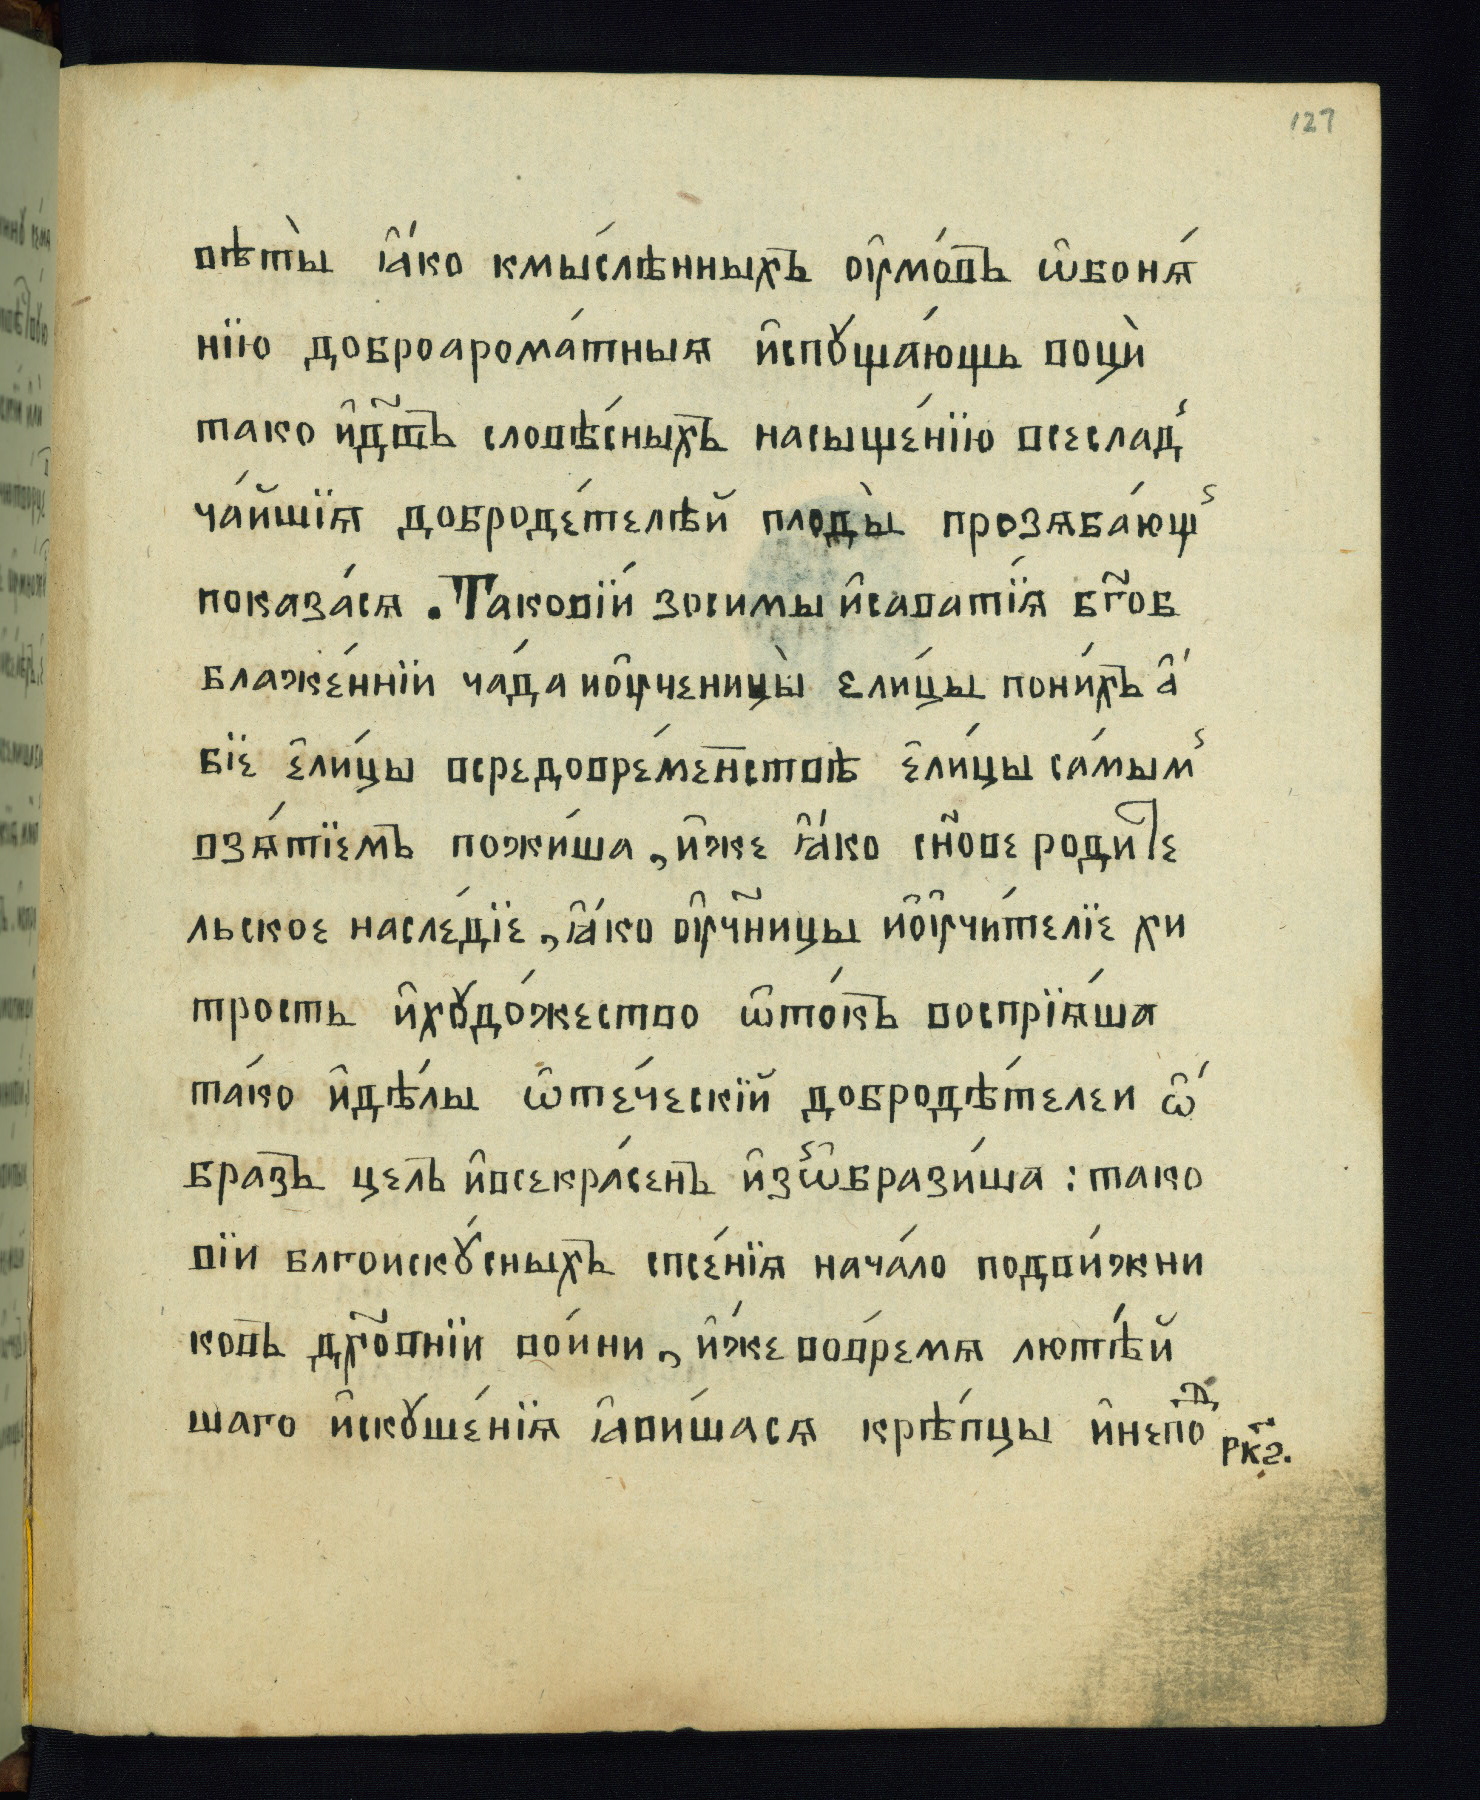 127
вѣты̀ ꙗ҆́ко кмы́слѣнныхъ оу҆мо́въ ѡ҆боня́
нїю доброарома́тныя и҆спꙋща́ющь воцѝ
тако и҆дш҃ъ слове́сныхъ насыще́нїю всеслад̾
ча́йшїѧ доброде́телѣй плоды̀ прозѧба́ющ̾
показа́сѧ . Таковїи́ зосимы и҆савати́ѧ бг҃об
блаже́ннїи ча́да ио҆у҆ченицы̀ єли́цы пони́хъ а҆́
бїе є҆ли́цы всредовре́менствѣ є҆ли́цы са́мым̾
взѧ́тїемъ пожи́ша , и҆́же ꙗ҆́ко сн҃ове родите
льское насле́дїе , ꙗ҆́ко оу҆чн҃ицы и҆оу҆чи́телїе хи
трость и҆хꙋдо́жество ѡ҆то́къ воспрїѧ́ша
та́ко и҆дѣ́лы ѡ҆те́ческїй добродѣ́телеи ѡ҆́
бразъ целъ и҆всекра́сенъ и҆з̾ѡ҆брази́ша : тако
вїи блгоискꙋ́сныхъ спсе́нїѧ нача́ло подви́жни
ковъ дх҃о́внїи во́ини , и҆́же вовре́мѧ лютѣ́й
шаго и҆скꙋше́нїѧ ꙗ҆ви́шасѧ крѣ́пцы и҆непоⷣ
рк҃г.